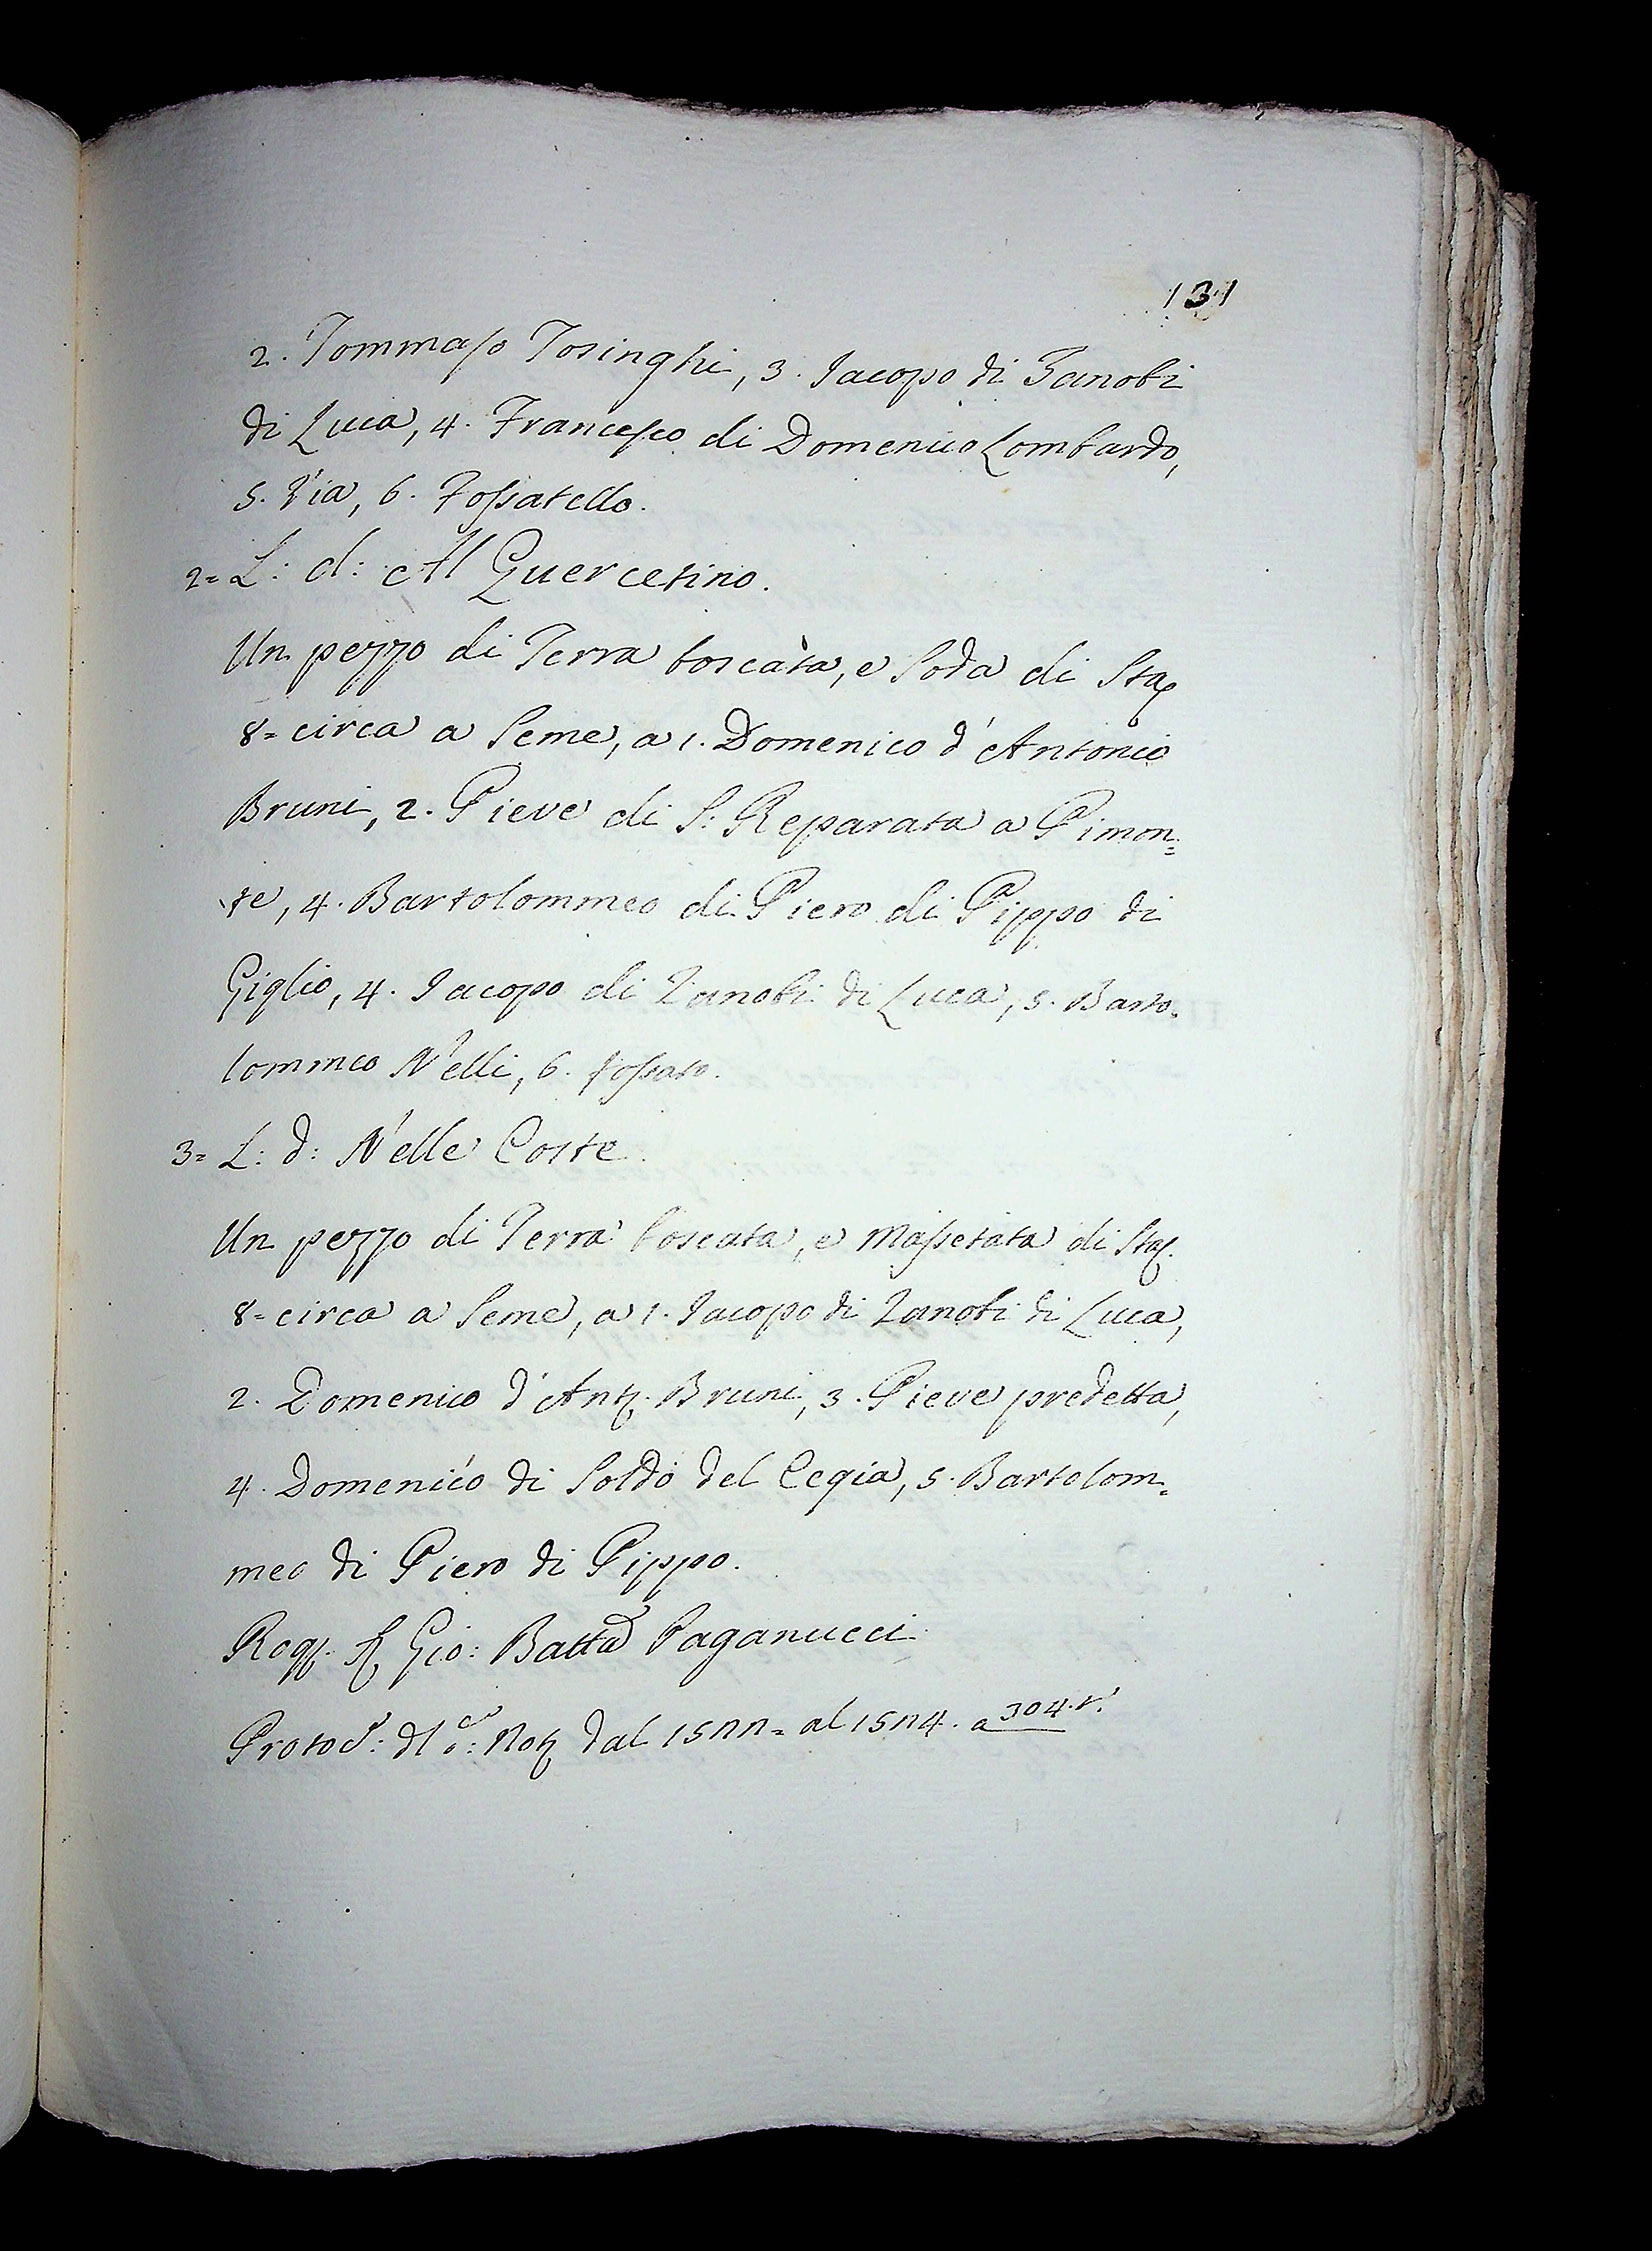 131
2. Tommaso Tosinghi, 3. Jacopo di Zanobi
di Luca, 4. Francesco di Domenico Lombardo,
5. Via, 6. Fossatello.
2= L: d: Al Quercetino.
Un pezzo di Terra boscata, e soda di Sta
8= circa a Seme, a 1. Domenico d'Antonio
Bruni, 2. Pieve di S: Reparata a Pimon=
te, 4. Bartolommeo di Piero di Pippo di
Giglio, 4. Jacopo di Zanobi di Luca, 5. Barto=
lommeo Nelli, 6. fossato.
3= L: d: Nelle Coste.
Un pezzo di Terra boscata, e Massetata di Sta.
8= circa a Seme, a 1. Jacopo di Zanobi di Luca,
2. Domenico d'Ant. Bruni, 3. Pieve predetta,
4. Domenico di Soldo del Cegia, 5. Bartolom=
meo di Piero di Pippo.
Rog. Gio: Batta Paganucci
Protoc: Not dal 1522= al 1524. a 304. v.